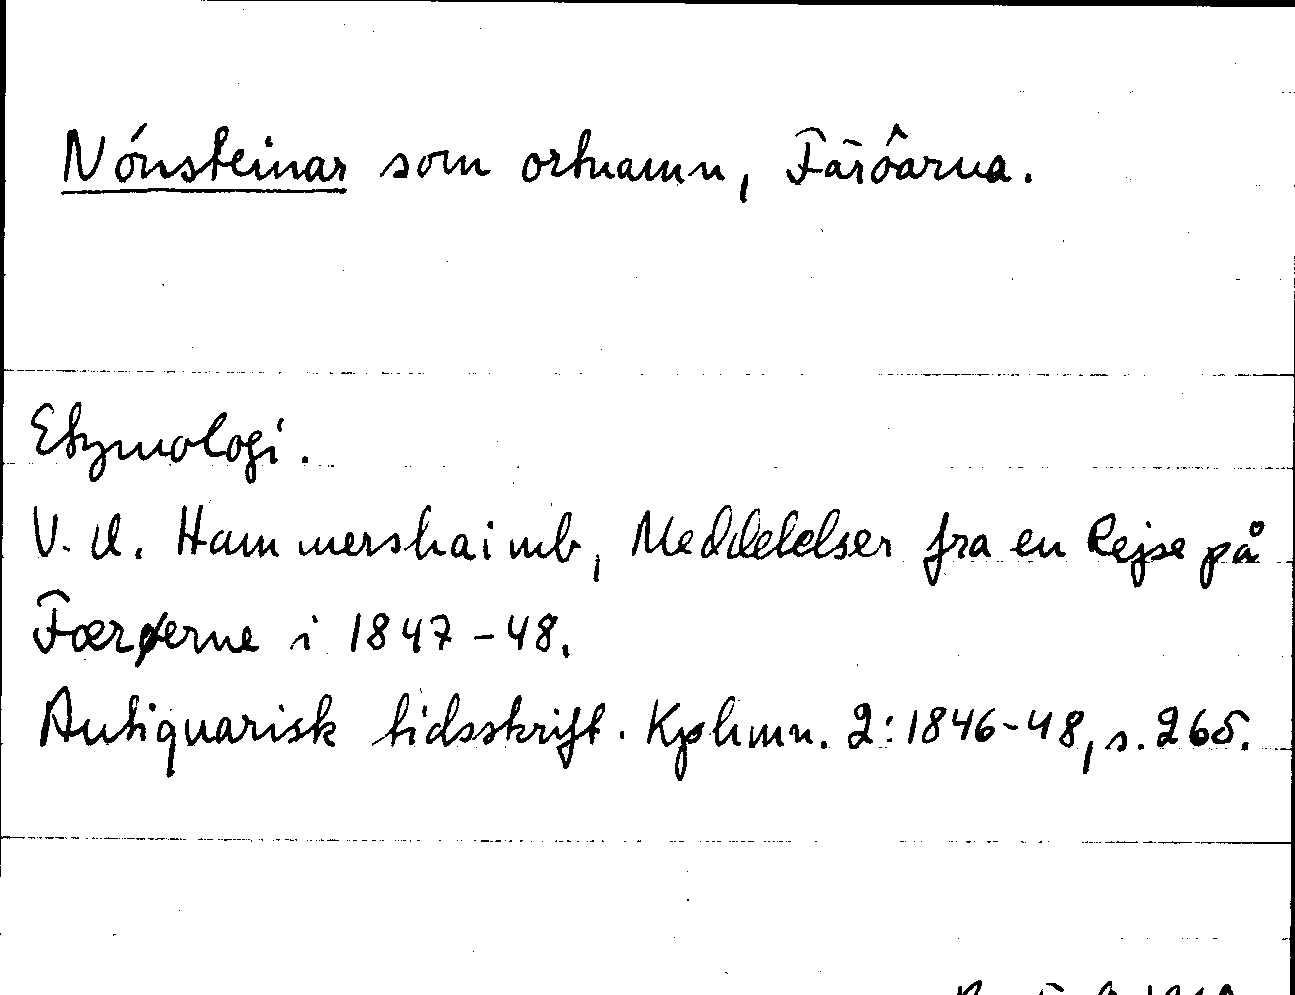 Nónsteinar som ortnamn, Färöarna.
Etymologi.
V. U. Hammershaimb, Meddelelser fra en Rejse på
Færøerne i 1847-48.
Antiquarisk tidsskrift. Kphmn. 2: 1846-48, s. 265.